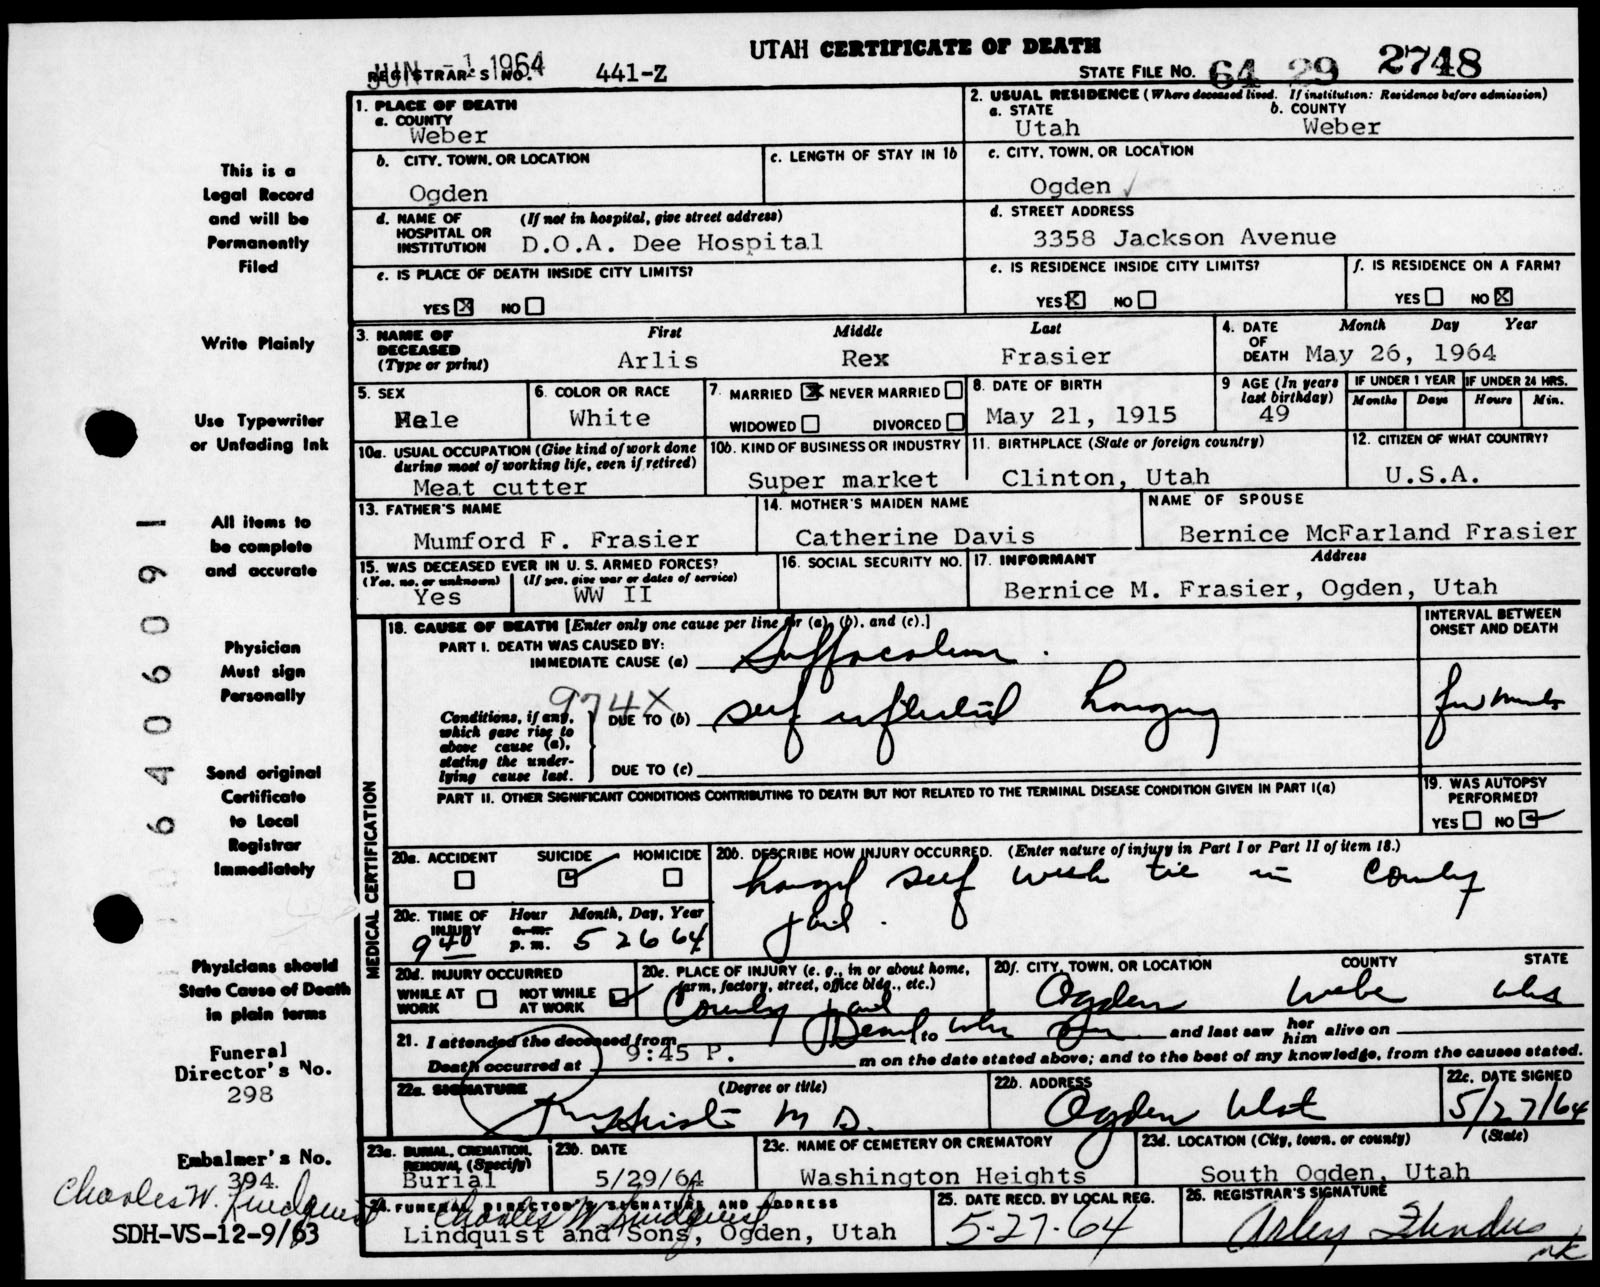 UTAH CERTIFICATE OF DEATH
JUN - 1 1964
REGISTRAR'S NO. 441-Z
STATE FILE NO. 64 29 2748
1. PLACE OF DEATH
a. COUNTY
Weber
2. USUAL RESIDENCE (Where deceased lived. If institution: Residence before admission)
a. STATE b. COUNTY
Utah Weber
b. CITY, TOWN, OR LOCATION
Ogden
c. LENGTH OF STAY IN 1b
c. CITY, TOWN, OR LOCATION
Ogden
d. NAME OF HOSPITAL OR INSTITUTION (If not in hospital, give street address)
D.O.A. Dee Hospital
d. STREET ADDRESS
3358 Jackson Avenue
e. IS PLACE OF DEATH INSIDE CITY LIMITS?
YES X NO
e. IS RESIDENCE INSIDE CITY LIMITS?
YES X NO
f. IS RESIDENCE ON A FARM?
YES NO X
3. NAME OF DECEASED (Type or print)
First Middle Last
Arlis Rex Frasier
4. DATE OF DEATH Month Day Year
May 26, 1964
5. SEX
Male
6. COLOR OR RACE
White
7. MARRIED X NEVER MARRIED
WIDOWED DIVORCED
8. DATE OF BIRTH
May 21, 1915
9 AGE (In years last birthday)
49
IF UNDER 1 YEAR IF UNDER 24 HRS.
Months Days Hours Min.
10a. USUAL OCCUPATION (Give kind of work done during most of working life, even if retired)
Meat cutter
10b. KIND OF BUSINESS OR INDUSTRY
Super market
11. BIRTHPLACE (State or foreign country)
Clinton, Utah
12. CITIZEN OF WHAT COUNTRY?
U.S.A.
13. FATHER'S NAME
Mumford F. Frasier
14. MOTHER'S MAIDEN NAME
Catherine Davis
NAME OF SPOUSE
Bernice McFarland Frasier
15. WAS DECEASED EVER IN U. S. ARMED FORCES?
(Yes, no, or unknown) (If yes, give war or dates of service)
Yes WW II
16. SOCIAL SECURITY NO.
17. INFORMANT Address
Bernice M. Frasier, Ogden, Utah
MEDICAL CERTIFICATION
18. CAUSE OF DEATH [Enter only one cause per line for (a), (b), and (c).]
INTERVAL BETWEEN ONSET AND DEATH
PART I. DEATH WAS CAUSED BY:
IMMEDIATE CAUSE (a) Suffocation.
974X
Conditions, if any, which gave rise to above cause (a), stating the underlying cause last.
DUE TO (b) self inflicted hanging few minutes
DUE TO (c)
PART II. OTHER SIGNIFICANT CONDITIONS CONTRIBUTING TO DEATH BUT NOT RELATED TO THE TERMINAL DISEASE CONDITION GIVEN IN PART I(a)
19. WAS AUTOPSY PERFORMED?
YES NO
20a. ACCIDENT SUICIDE HOMICIDE
20b. DESCRIBE HOW INJURY OCCURRED. (Enter nature of injury in Part I or Part II of item 18.)
hanged self with tie in County
jail.
20c. TIME OF INJURY Hour Month, Day, Year
a.m.
9 40 p. m. 5 26 64
20d. INJURY OCCURRED
WHILE AT WORK NOT WHILE AT WORK
20e. PLACE OF INJURY (e. g., in or about home, farm, factory, street, office bldg., etc.)
County jail
20f. CITY, TOWN, OR LOCATION COUNTY STATE
Ogden Weber Utah
21. I attended the deceased from Dead to when seen and last saw her him alive on
Death occurred at 9:45 P. m on the date stated above; and to the best of my knowledge, from the causes stated.
22a. SIGNATURE (Degree or title)
M D.
22b. ADDRESS
Ogden Utah
22c. DATE SIGNED
5/27/64
23a. BURIAL, CREMATION, REMOVAL (Specify)
Burial
23b. DATE
5/29/64
23c. NAME OF CEMETERY OR CREMATORY
Washington Heights
23d. LOCATION (City, town, or county) (State)
South Ogden, Utah
24. FUNERAL DIRECTOR'S SIGNATURE AND ADDRESS
Charles W. Lindquist
Lindquist and Sons, Ogden, Utah
25. DATE RECD. BY LOCAL REG.
5-27-64
26. REGISTRAR'S SIGNATURE
nk
This is a
Legal Record
and will be
Permanently
Filed
Write Plainly
Use Typewriter
or Unfading Ink
All items to
be complete
and accurate
Physician
Must sign
Personally
Send original
Certificate
to Local
Registrar
Immediately
Physicians should
State Cause of Death
in plain terms
Funeral
Director's No.
298
Embalmer's No.
394
Charles W. Lindquist
SDH-VS-12-9/63
6406091